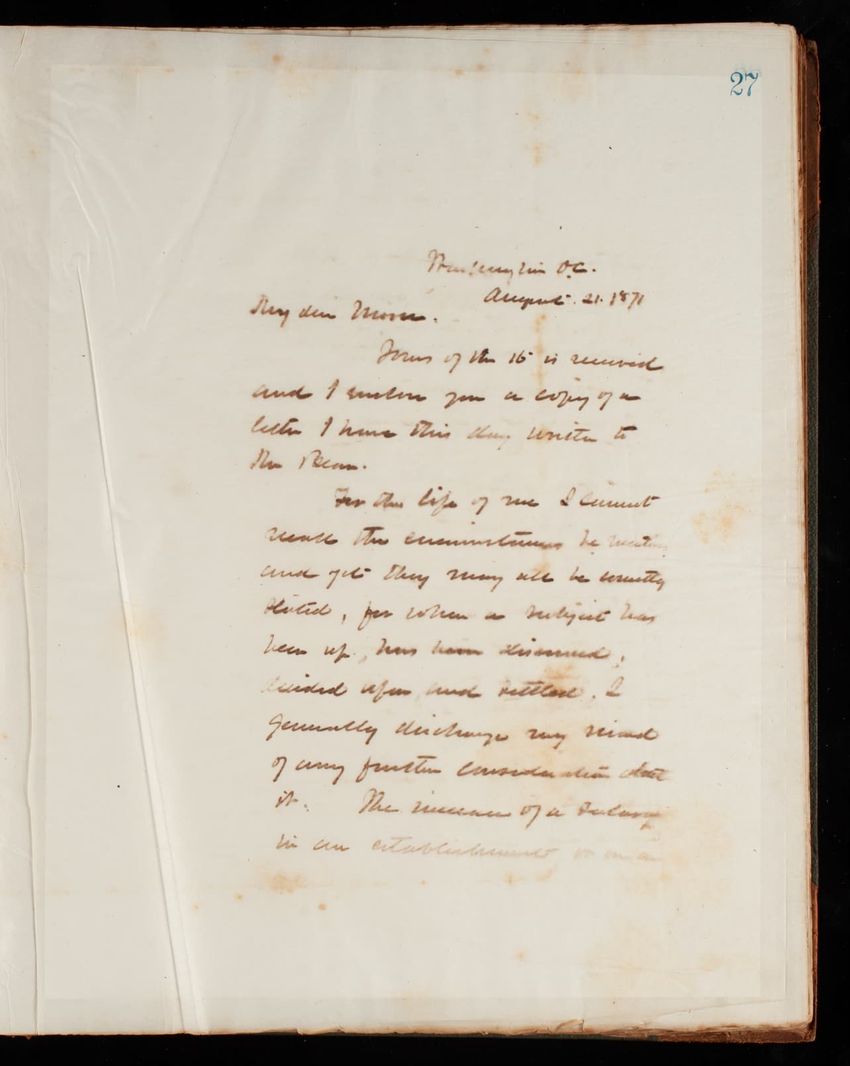 27
Washington D.C.
August 21. 1871
My dear Moore.
Yours of the 15 is received
and I enclose you a copy of a
letter I have this day written to
the Dean.
For the life of me I cannot
recall the circumstances he
and yet they may all be correctly
stated, for when a subject has
been up, has been discussed,
decided upon, and settled, I
generally discharge my mind
of any further consideration about
it. The increase of a salary
in an establishment or on a